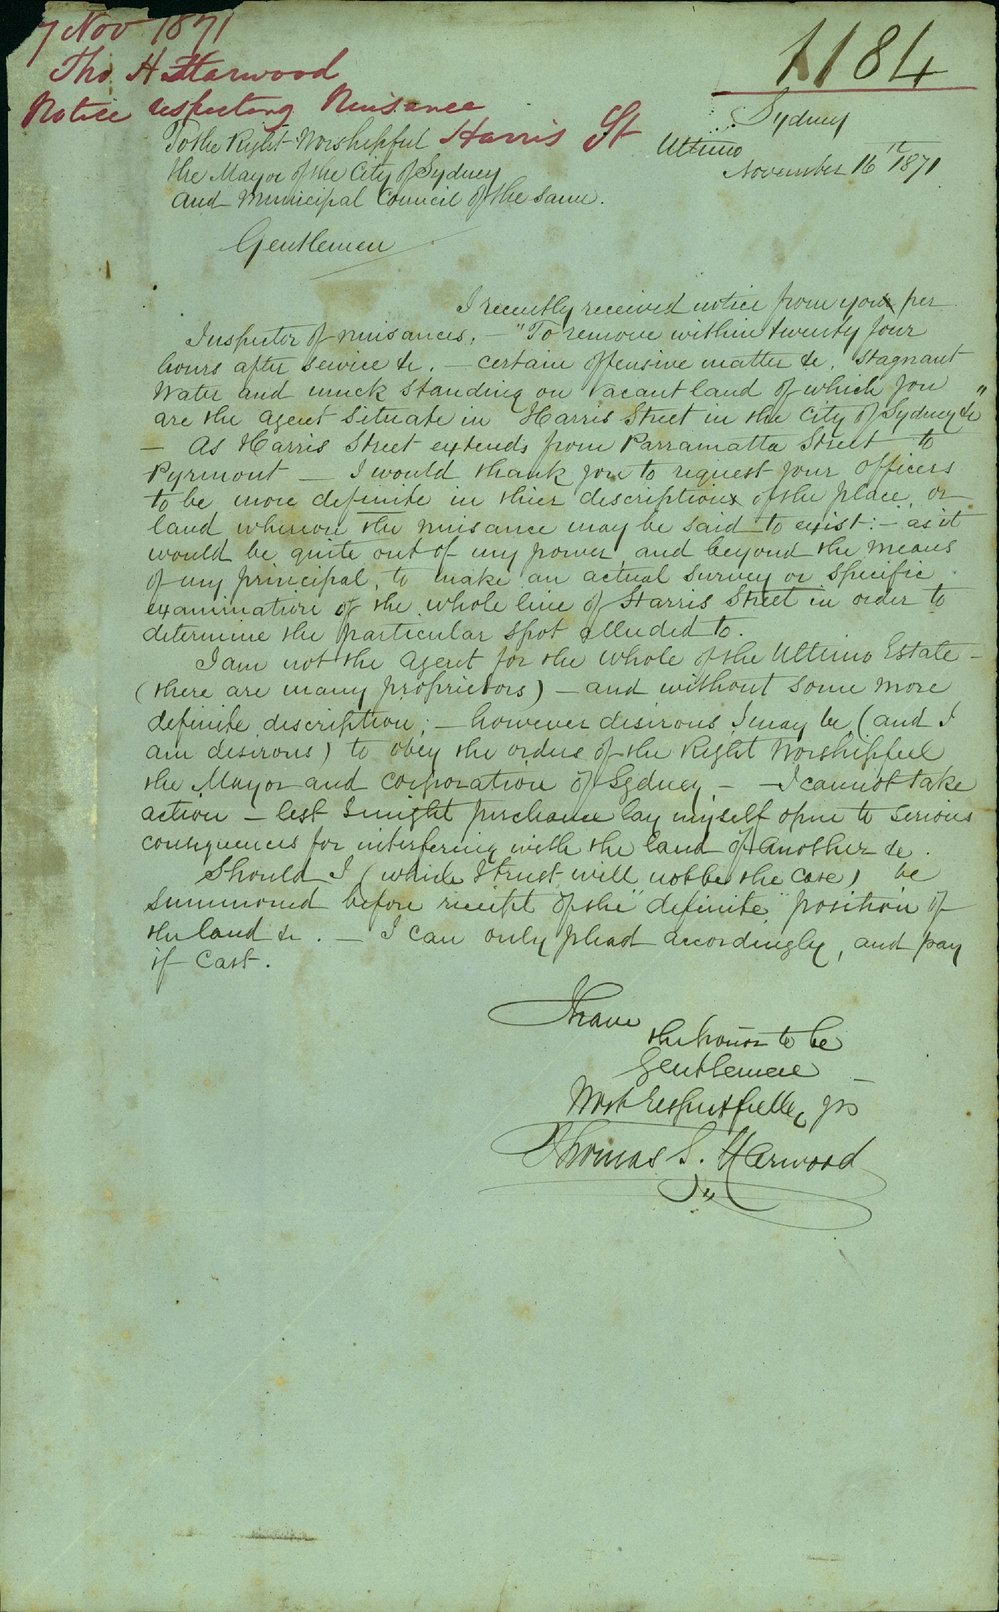 7 Nov 1871
Tho. H Harwood
Notice respecting Nuisance
Harris St
1184
Sydney
Ultimo
November 16th 1871
To the Right Worshipful
the Mayor of the City of Sydney
and Municipal Council of the same.
Gentlemen
I recently received notice from you per
Inspector of nuisances, – "To remove within twenty four
hours after service &c. – certain offensive matter &c. stagnant
water and muck standing on vacant land of which you
are the agent situate in Harris Street in the City of Sydney &c"
– As Harris Street extends from Parramatta Street to
Pyrmont – I would thank you to request your officers
to be more definite in thier description of the place or
land whereon the nuisance may be said to exist: – as it
would be quite out of my power and beyond the means
of my principal, to make an actual survey or specific
examination of the whole line of Harris Street in order to
determine the particular spot alluded to.
I am not the agent for the whole of the Ultimo Estate –
(there are many proprietors) – and without some more
definite discription; – however desirous I may be (and I
am desirous) to obey the orders of the Right Worshipful
the Mayor and corporation of Sydney – – I cannot take
action – lest I might perchance lay myself open to serious
consequences for interfering with the land of another &c.
Should I (which I trust will not be the case) be
summoned before receipt of the "definite" position of
the land &c. – I can only plead accordingly, and pay
if Cast.
I have
the honor to be
Gentlemen
Most respectfully yrs
Thomas S. Harwood